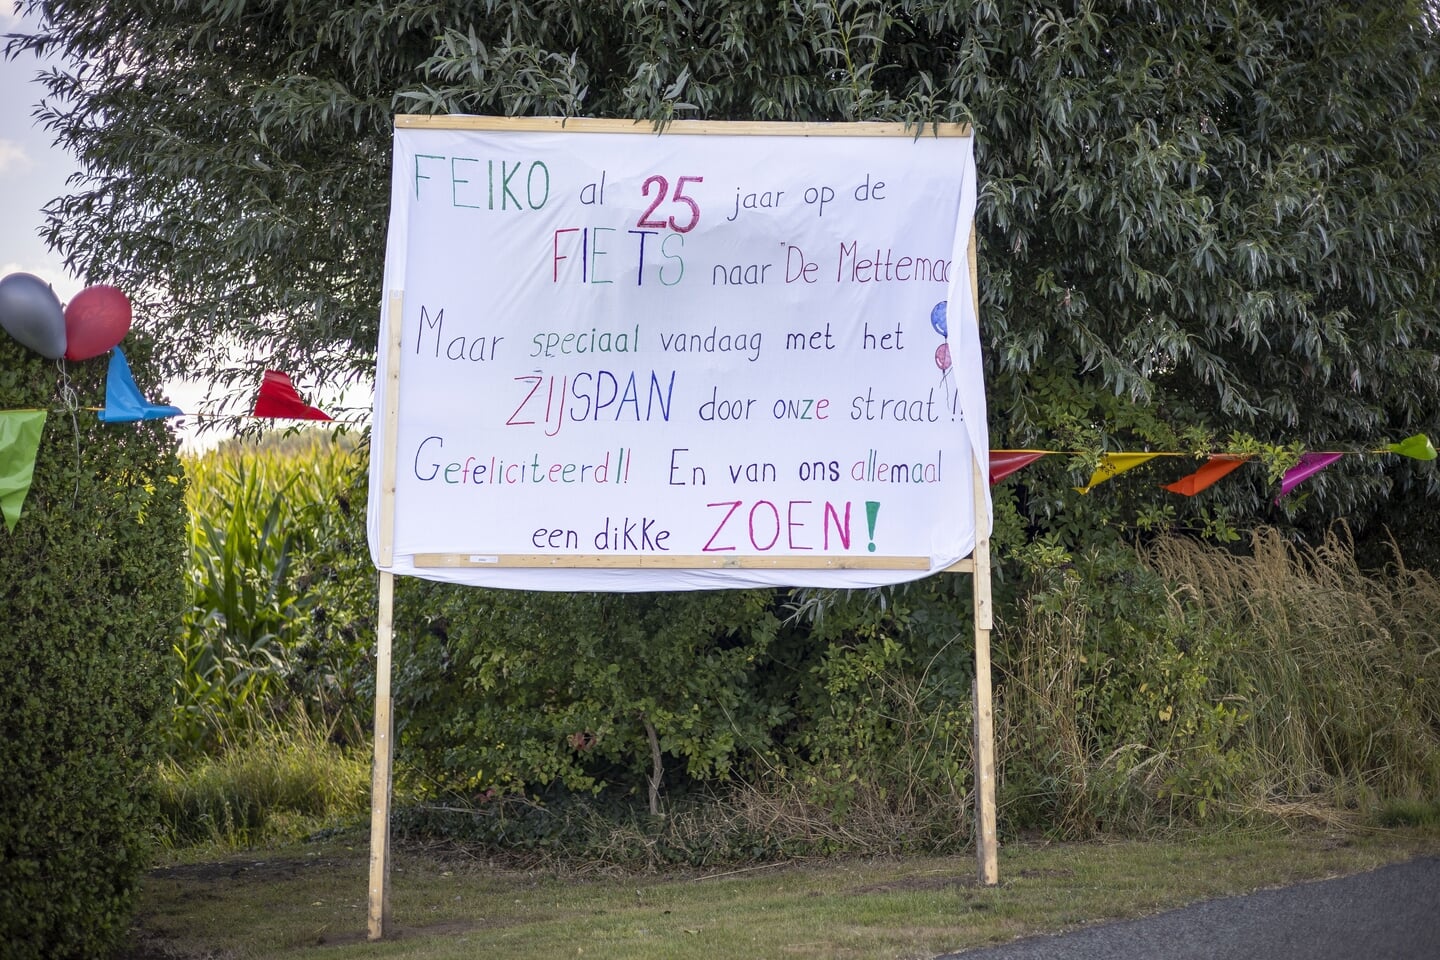 FEIKO al 25 jaar op de
FIETS naar "De Mettemaa
Maar speciaal vandaag met het
ZIJSPAN door onze straat!!
Gefeliciteerd!! En van ons allemaal
een dikke ZOEN!